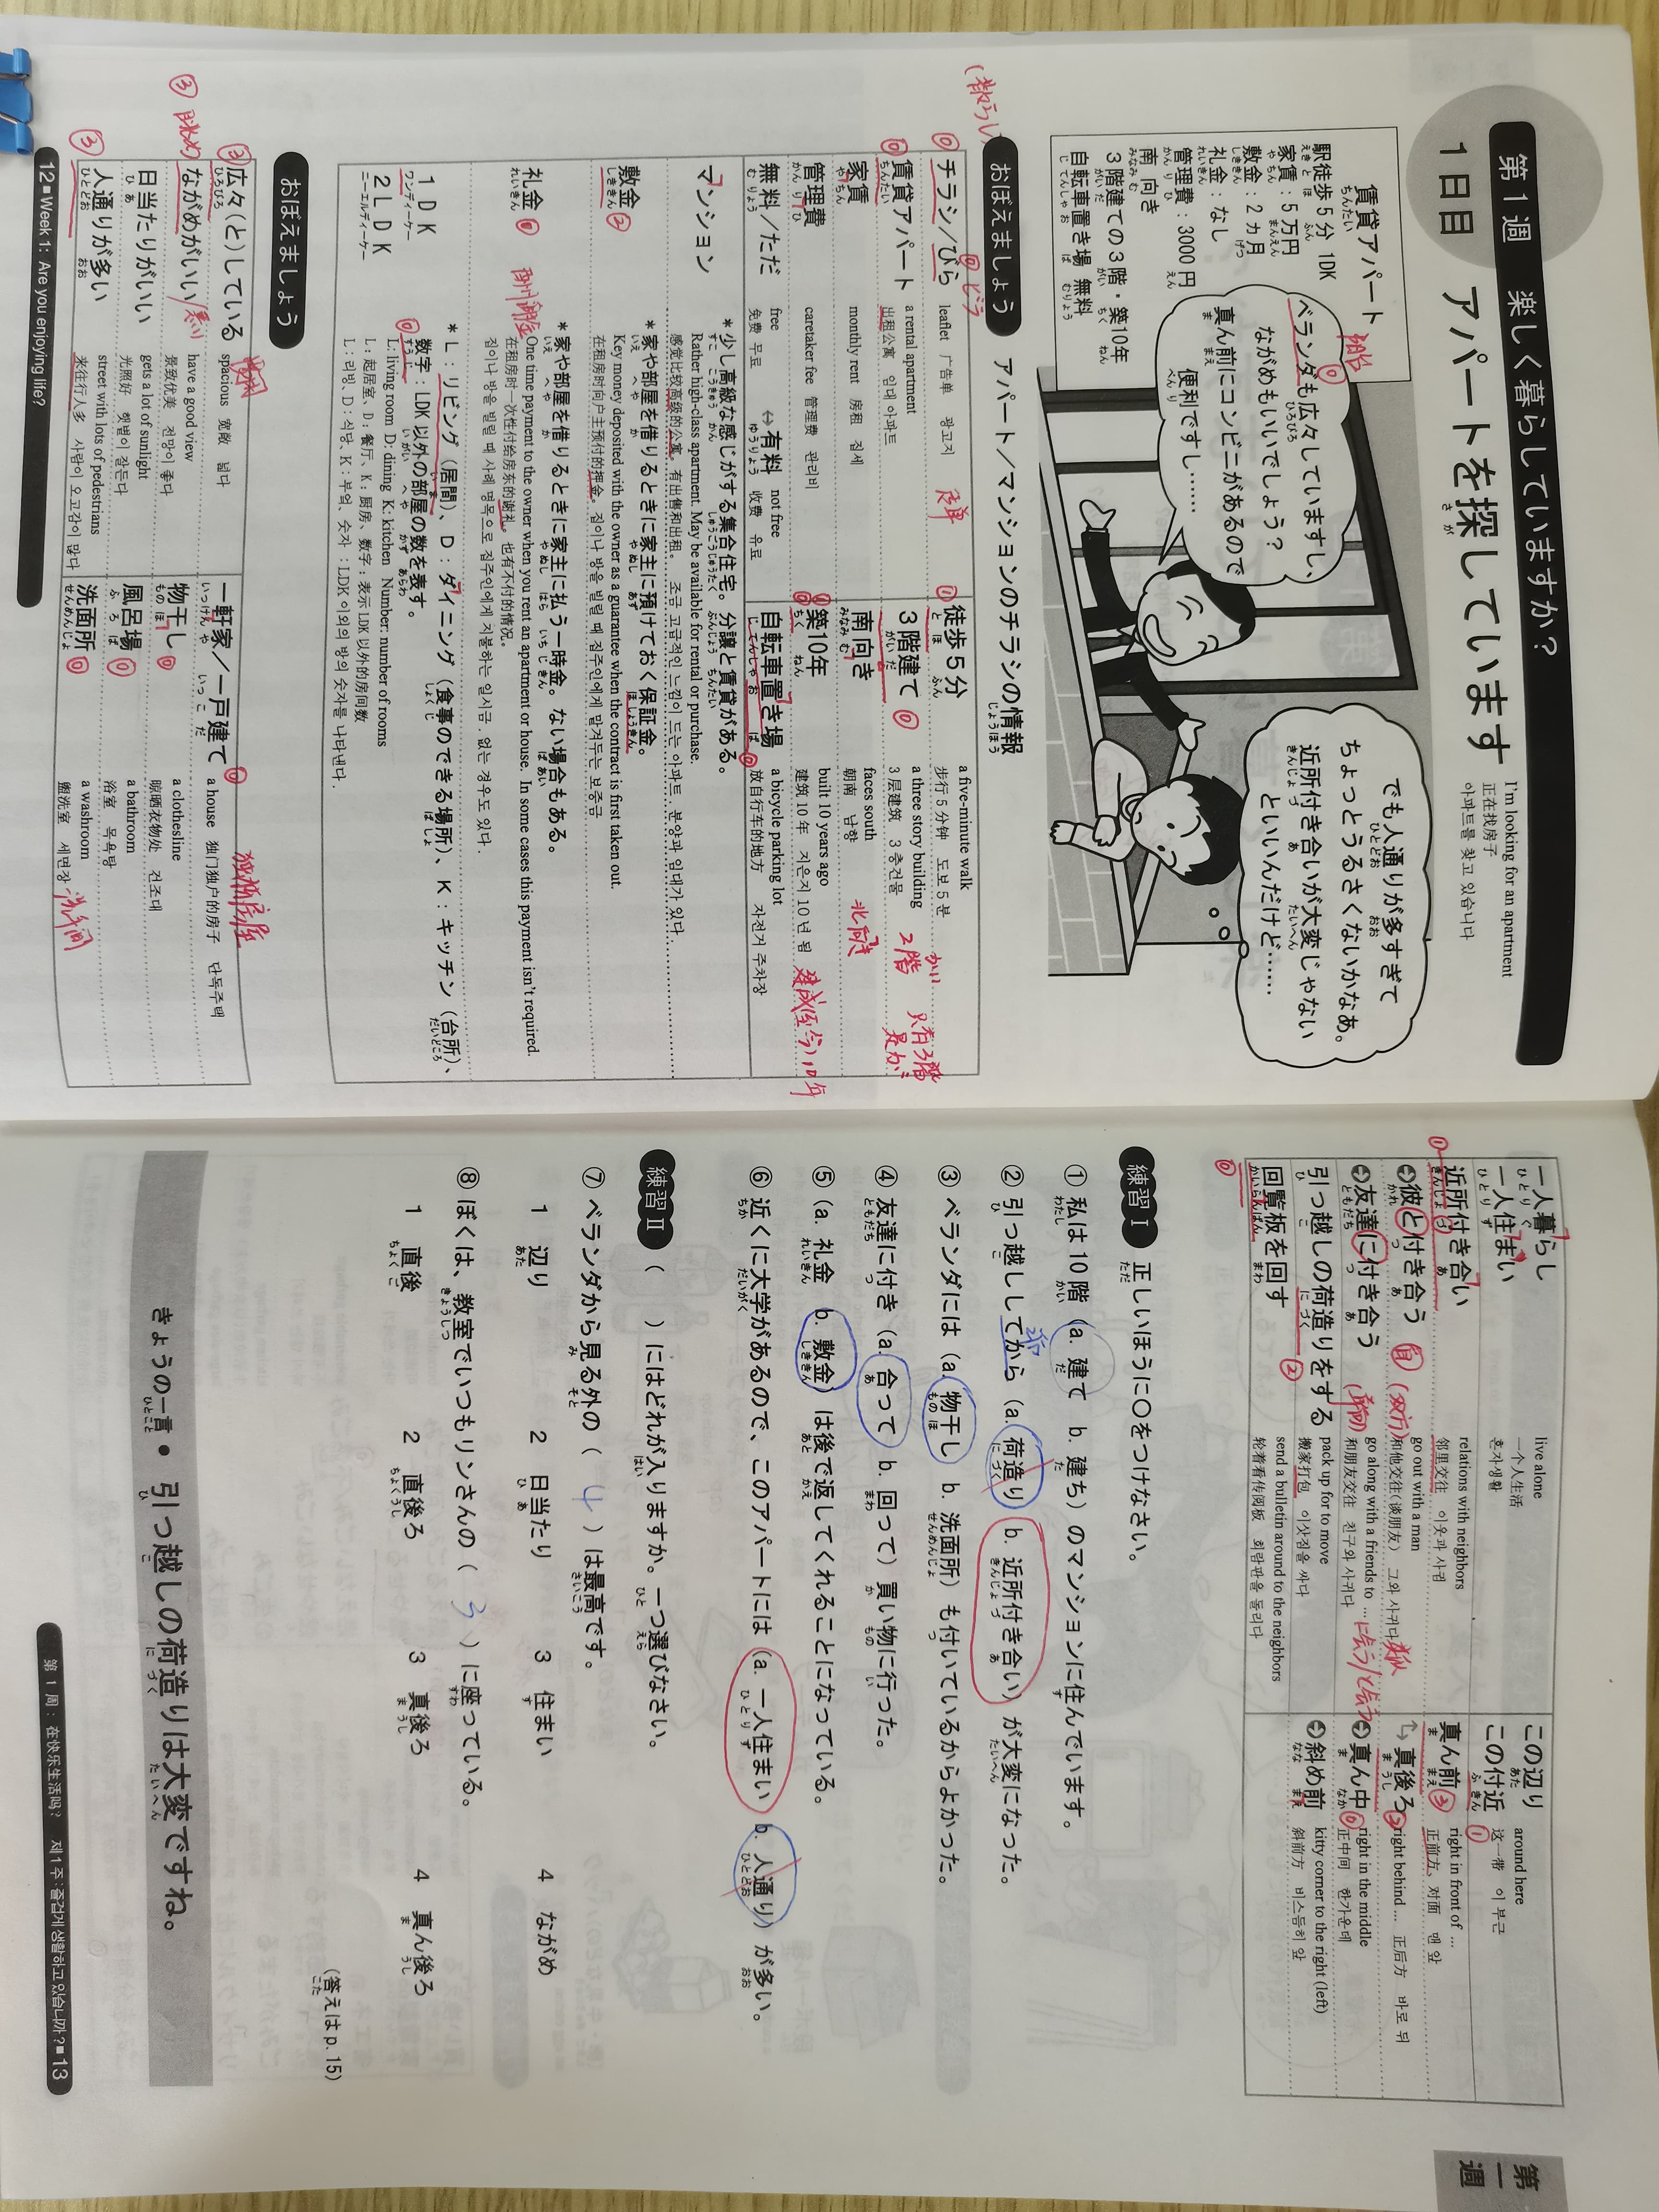 第1週 楽しく暮らしていますか?
1日目 アパートを探しています
I'm looking for an apartment
正在找房子
아파트를 찾고 있습니다
賃貸アパート
駅徒歩5分 1DK
家賃:5万円
敷金:2カ月
礼金:なし
管理費:3000円
南向き
3階建ての3階・築10年
自転車置き場 無料
ベランダも広々していますし、
ながめもいいでしょう?
真ん前にコンビニがあるので
便利ですし……
でも人通りが多すぎて
ちょっとうるさくないかなあ。
近所付き合いが大変じゃない
といいんだけど……
おぼえましょう アパート/マンションのチラシの情報
チラシ/びら leaflet 广告单 광고지
賃貸アパート a rental apartment 出租公寓 임대 아파트
家賃 monthly rent 房租 집세
管理費 caretaker fee 管理费 관리비
無料/ただ free 免费 무료 ⇔有料 not free 收费 유료
徒歩5分 a five-minute walk 步行5分钟 도보 5분
3階建て a three story building 3层建筑 3층건물
南向き faces south 朝南 남향
築10年 built 10 years ago 建筑10年 지은지 10년 됨
自転車置き場 a bicycle parking lot 放自行车的地方 자전거 주차장
北向き
2階
マンション *少し高級な感じがする集合住宅。分譲と賃貸がある。
Rather high-class apartment. May be available for rental or purchase.
感觉比较高级的公寓。有出售和出租。 조금 고급적인 느낌이 드는 아파트. 분양과 임대가 있다.
敷金 *家や部屋を借りるときに家主に預けておく保証金。
Key money deposited with the owner as a guarantee when the contract is first taken out.
在租房时向户主预付的押金。 집이나 방을 빌릴 때 집주인에게 맡겨두는 보증금
礼金 *家や部屋を借りるときに家主に払う一時金。ない場合もある。
One time payment to the owner when you rent an apartment or house. In some cases this payment isn't required.
在租房时一次性付给房东的谢礼。也有不付的情况。
집이나 방을 빌릴 때 사례 명목으로 집주인에게 지불하는 일시금. 없는 경우도 있다.
1DK
2LDK
*L:リビング(居間)、D:ダイニング(食事のできる場所)、K:キッチン(台所)、
数字:LDK以外の部屋の数を表す。
L: living room D: dining K: kitchen Number: number of rooms
L:起居室、D:餐厅、K:厨房、数字:表示LDK以外的房间数
L:리빙, D:식당, K:부엌, 숫자:LDK 이외의 방의 숫자를 나타낸다.
おぼえましょう
広々(と)している spacious 宽敞 넓다
ながめがいい have a good view 景致优美 전망이 좋다
日当たりがいい gets a lot of sunlight 光照好 햇볕이 잘든다
人通りが多い street with lots of pedestrians 来往行人多 사람이 오고감이 많다
一軒家/一戸建て a house 独门独户的房子 단독주택
物干し a clothesline 晾晒衣物处 건조대
風呂場 a bathroom 浴室 목욕탕
洗面所 a washroom 盥洗室 세면장
12■Week 1: Are you enjoying life?
一人暮らし
一人住まい live alone 一个人生活 혼자생활
近所付き合い relations with neighbors 邻里交往 이웃과 사귐
➔彼と付き合う go out with a man 和他交往(谈朋友) 그와 사귀다
➔友達に付き合う go along with a friends to ... 和朋友交往 친구와 사귀다
引っ越しの荷造りをする pack up for to move 搬家打包 이삿짐을 싸다
回覧板を回す send a bulletin around to the neighbors 轮着看传阅板 회람판을 돌리다
この辺り around here
この付近 这一带 이 부근
真ん前 right in front of ... 正前方、对面 맨 앞
真後ろ right behind ... 正后方 바로 뒤
➔真ん中 right in the middle 正中间 한가운데
➔斜め前 kitty corner to the right (left) 斜前方 비스듬히 앞
練習Ⅰ 正しいほうに○をつけなさい。
① 私は10階(a. 建て b. 建ち)のマンションに住んでいます。
② 引っ越ししてから(a. 荷造り b. 近所付き合い)が大変になった。
③ ベランダには(a. 物干し b. 洗面所)も付いているからよかった。
④ 友達に付き(a. 合って b. 回って)買い物に行った。
⑤ (a. 礼金 b. 敷金)は後で返してくれることになっている。
⑥ 近くに大学があるので、このアパートには(a. 一人住まい b. 人通り)が多い。
練習Ⅱ ( )にはどれが入りますか。一つ選びなさい。
⑦ ベランダから見る外の( 4 )は最高です。
1 辺り 2 日当たり 3 住まい 4 ながめ
⑧ ぼくは、教室でいつもリンさんの( 3 )に座っている。
1 直後 2 直後ろ 3 真後ろ 4 真ん後ろ
(答えはp. 15)
きょうの一言● 引っ越しの荷造りは大変ですね。
第1周:在快乐生活吗? 제1주:즐겁게 생활하고 있습니까?■13
第一週